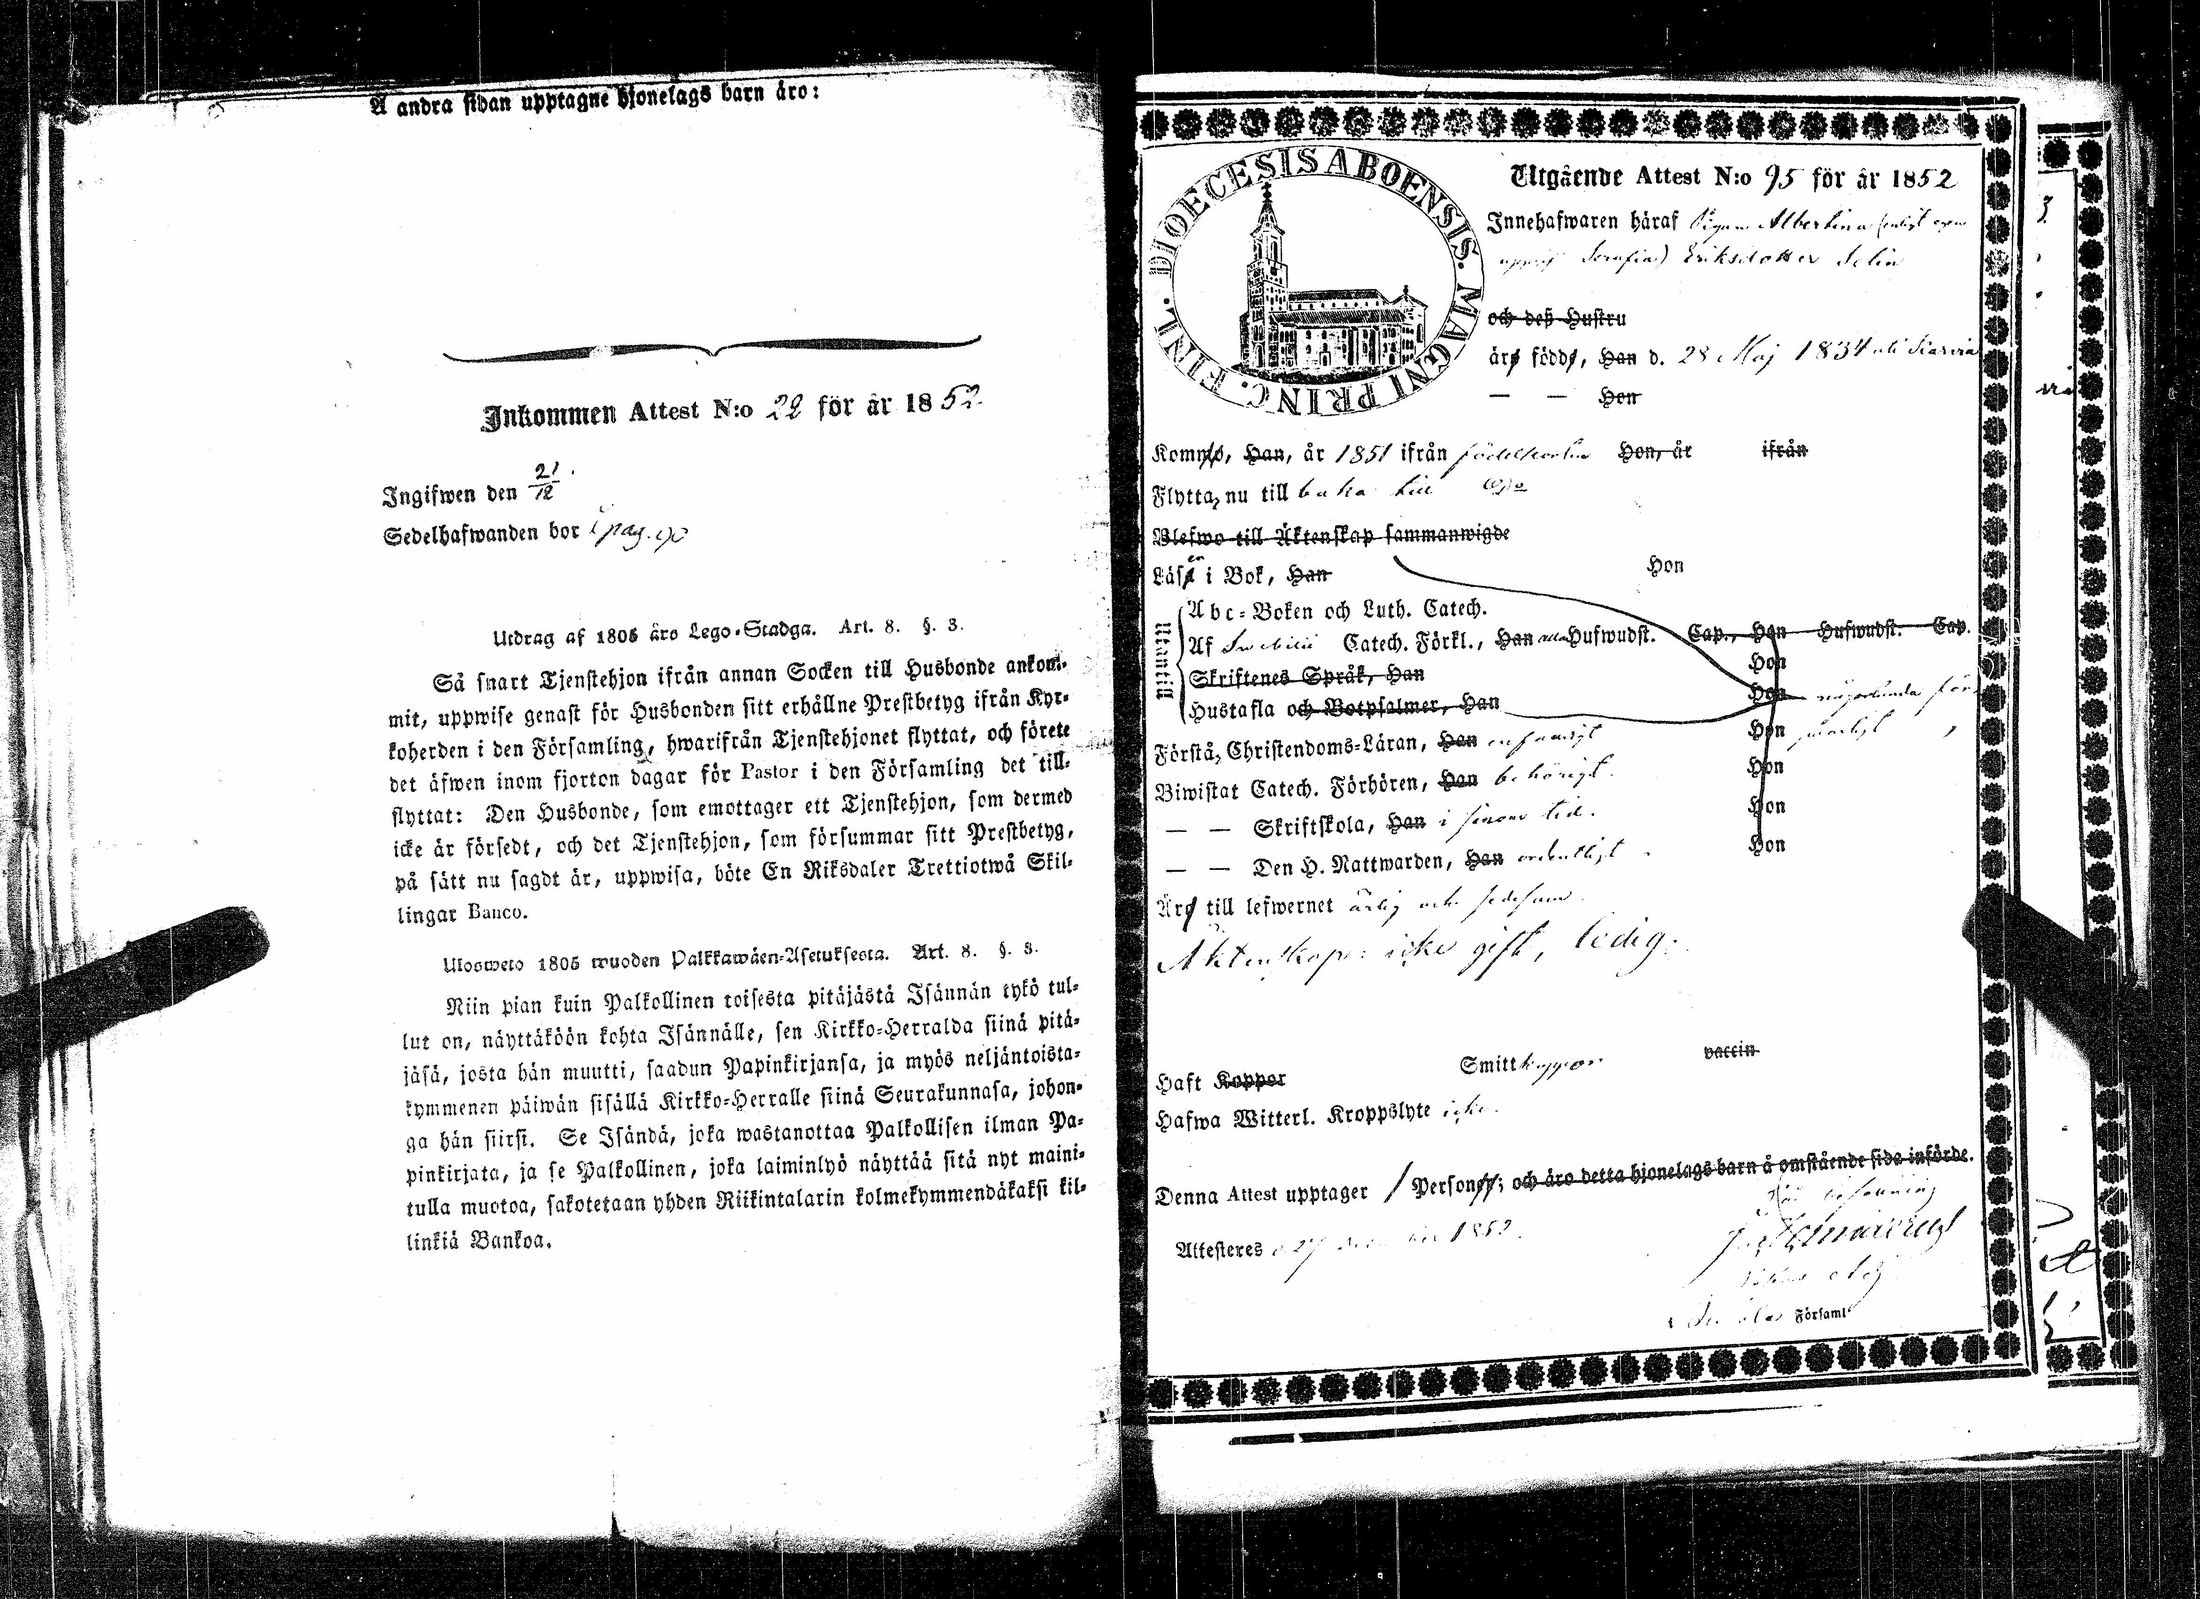 Å andra sidan upptagne hjonelags barn äro:
Inkommen Attest N:o 22 för år 1852
Ingifwen den 21/12
Sedelhafwanden bor i pag.
Utdrag af 1805 års Lego-Stadga. Art. 8. §. 3.
Så snart Tjenstehjon ifrån annan Socken till Husbonde ankom-
mit, uppwise genast för Husbonden sitt erhållne Prestbetyg ifrån Kyr-
koherden i den Församling, hwarifrån Tjenstehjonet flyttat, och förete
det äfwen inom fjorton dagar för Pastor i den Församling det till-
flyttat: Den Husbonde, som emottager ett Tjenstehjon, som dermed
icke är försedt, och det Tjenstehjon, som försummar sitt Prestbetyg,
på sätt nu sagdt är, uppwisa, böte En Riksdaler Trettiotwå Skil-
lingar Banco.
Ulosweto 1805 wuoden Palkkawäen-Asetuksesta. Art. 8. §. 3.
Niin pian kuin Palkollinen toisesta pitäjästä Isännän tykö tul-
lut on, näyttäköön kohta Isännälle, sen Kirkko-Herralda siinä pitä-
jäsä, josta hän muutti, saadun Papinkirjansa, ja myös neljäntoista-
kymmenen päiwän sisällä Kirkko-Herralle siinä Seurakunnasa, johon-
ga hän siirsi. Se Isändä, joka wastanottaa Palkollisen ilman Pa-
pinkirjata, ja se Palkollinen, joka laiminlyö näyttää sitä nyt maini-
tulla muotoa, sakotetaan yhden Riikintalarin kolmekymmendäkaksi kil-
linkiä Bankoa.
DIOECESIS ABOENSIS. MAGNI PRINC. FINL.
Utgående Attest N:o 95 för år 1852
Innehafwaren häraf Pigan Albertina (enligt egen
uppgift Serafia) Eriksdotter Selin
och deß Hustru
äro födde, Han d. 28 Maj 1834 uti Kiarvia
— — Hon
Kommo, Han, år 1851 ifrån födelseorten Hon, år ifrån
Flytta, nu till baka till
Blefwo till Äktenskap sammanwigde
Läsen i Bok, Han Hon
Minnen
Abc-Boken och Luth. Catech.
Af Svebilii Catech. Förkl., Han alla Hufwudst. Cap., Han Hufwudst. Cap.
Hon
Skriftenes Språk, Han Hon någorlunda för-
Hustafla och Botpsalmer, Han
Förstå, Christendoms-Läran, Han enfaldigt Hon swarligt
Biwistat Catech. Förhören, Han behörigt. Hon
— — Skriftskola, Han i sinom tid. Hon
— — Den H. Nattwarden, Han ordentligt Hon
Äro till lefwernet ärlig och sedesam.
Äktenskap: icke gift, ledig.
Haft Koppor Smittkoppor vaccin
Hafwa Witterl. Kroppslyte icke.
Denna Attest upptager 1 Personer; och äro detta hjonelags barn å omstående sida införde.
Attesteres d 27 1852.
Församl